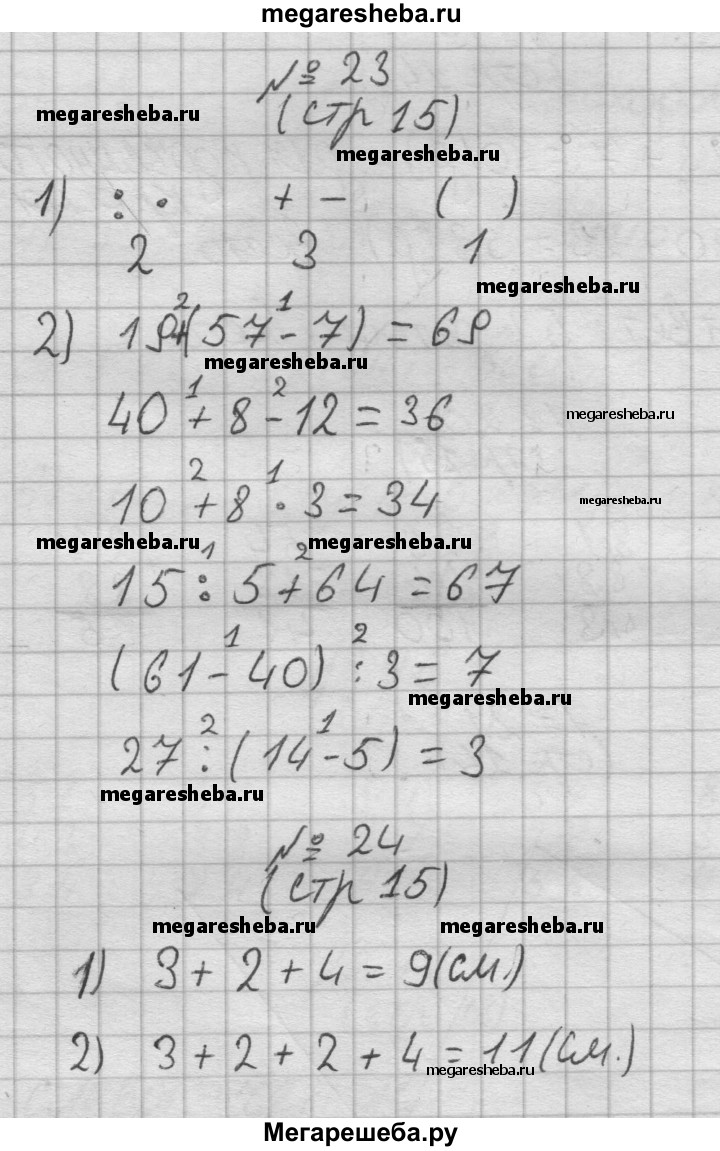 megaresheba.ru
№ 23
megaresheba.ru
(стр 15)
megaresheba.ru
1) : · + - ( )
2 3 1
megaresheba.ru
2 1
2) 19+(57-7) = 69
megaresheba.ru
1 2
40 + 8 - 12 = 36
megaresheba.ru
2 1
10 + 8 · 3 = 34
megaresheba.ru
megaresheba.ru megaresheba.ru
1 2
15 : 5 + 64 = 67
1 2
(61 - 40) : 3 = 7
megaresheba.ru
2 1
27 : (14 - 5) = 3
megaresheba.ru
№ 24
(стр 15)
megaresheba.ru megaresheba.ru
1) 3 + 2 + 4 = 9(см.)
2) 3 + 2 + 2 + 4 = 11(см.)
megaresheba.ru
Мегарешеба.ру